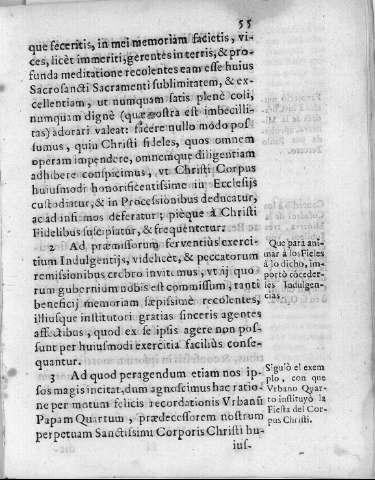 55
que feceritis, in mei memoriam facietis, vi-
ces, licèt immeriti, gerentes in terris, & pro-
funda meditatione recolentes eam esse huius
Sacrosancti Sacramenti sublimitatem, & ex-
cellentiam, ut numquam satis plenè coli,
numquam dignè (quæ nostra est imbecilli-
tas) adorari valeat: facere nullo modo pos-
sumus, quin Christi fideles, quos omnem
operam impendere, omnemque diligentiam
adhibere conspicimus, vt Christi Corpus
huiusmodi honorificentissime in Ecclesijs
custodiatur, & in Processionibus deducatur,
ac ad infirmos deferatur; pièque à Christi
Fidelibus suscipiatur, & frequentetur.
2 Ad præmissorum ferventius exerci-
tium Indulgentijs, videlicèt, & peccatorum
remissionibus crebro invitemus, vt ij quo-
rum gubernium nobis est commissum, tanti
beneficij memoriam sæpissimè recolentes,
illiusque institutori gratias sinceris agentes
affectibus, quod ex se ipsis agere non pos-
sunt per huiusmodi exercitia facilius conse-
quantur.
Que para ani-
mar à los Fieles
à lo dicho, im-
portò cōceder-
les Indulgen-
cias.
3 Ad quod peragendum etiam nos ip-
sos magis incitat, dum agnoscimus hac ratio-
ne per motum felicis recordationis Vrbanū
Papam Quartum, prædecessorem nostrum
perpetuam Sanctissimi Corporis Christi hu-
ius-
Siguiò el exem
plo, con que
Vrbano Quar-
to instituyò la
Fiesta del Cor-
pus Christi.